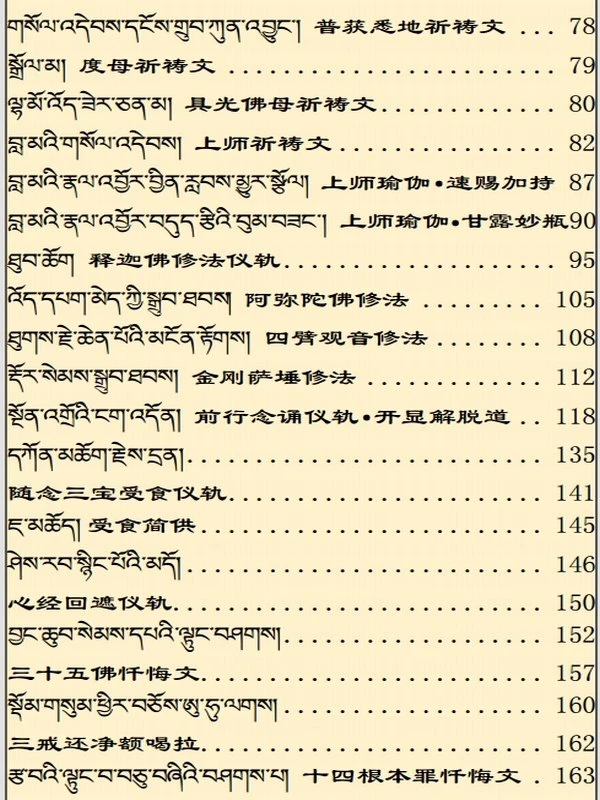 གསོལ་འདེབས་དངོས་གྲུབ་ཀུན་འབྱུང་། 普获悉地祈祷文 ... 78
སྒྲོལ་མ། 度母祈祷文 ........................ 79
ལྷ་མོ་འོད་ཟེར་ཅན་མ། 具光佛母祈祷文............. 80
བླ་མའི་གསོལ་འདེབས། 上师祈祷文 ................ 82
བླ་མའི་རྣལ་འབྱོར་བྱིན་རླབས་མྱུར་སྩོལ། 上师瑜伽•速赐加持 87
བླ་མའི་རྣལ་འབྱོར་བདུད་རྩིའི་བུམ་བཟང་། 上师瑜伽•甘露妙瓶90
ཐུབ་ཆོག 释迦佛修法仪轨..................... 95
འོད་དཔག་མེད་ཀྱི་སྒྲུབ་ཐབས། 阿弥陀佛修法 ......... 105
ཐུགས་རྗེ་ཆེན་པོའི་མངོན་རྟོགས། 四臂观音修法 ........ 108
རྡོར་སེམས་སྒྲུབ་ཐབས། 金刚萨埵修法 ............. 112
སྔོན་འགྲོའི་ངག་འདོན། 前行念诵仪轨•开显解脱道 .. 118
དཀོན་མཆོག་རྗེས་དྲན།........................... 135
随念三宝受食仪轨........................ 141
ཇ་མཆོད། 受食简供.......................... 145
ཤེས་རབ་སྙིང་པོའི་མདོ། ........................... 146
心经回遮仪轨............................ 150
བྱང་ཆུབ་སེམས་དཔའི་ལྟུང་བཤགས།.................... 152
三十五佛忏悔文.......................... 157
སྡོམ་གསུམ་ཕྱིར་བཅོས་ཨུ་ཏུ་ལགས། .................... 160
三戒还净额喝拉.......................... 162
རྩ་བའི་ལྟུང་བ་བཅུ་བཞིའི་བཤགས་པ། 十四根本罪忏悔文 . 163